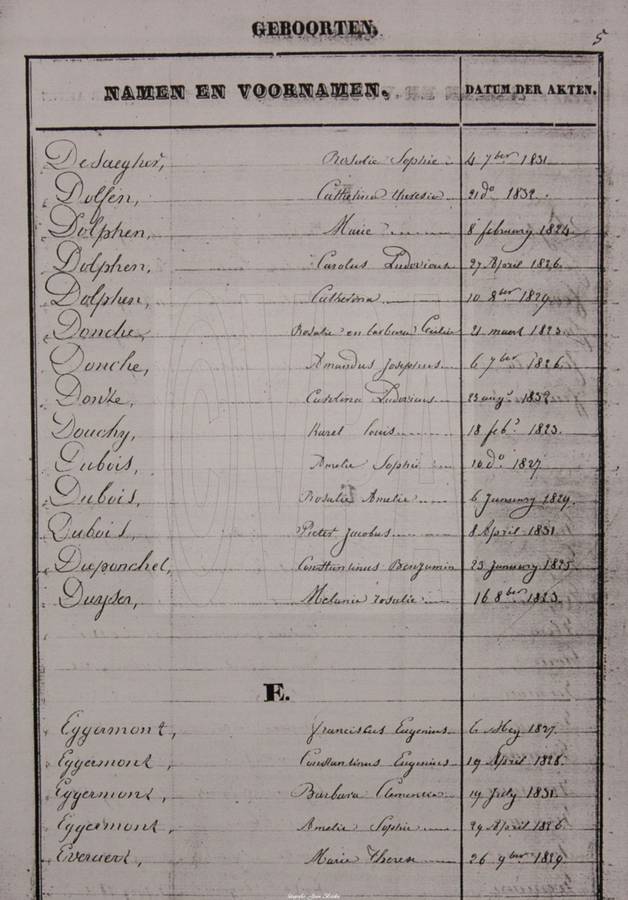 GEBOORTEN,
5
NAMEN EN VOORNAMEN. DATUM DER AKTEN.
Desaegher, Sophie 4 7ber 1831
Dolfen, Catherina theresia 21 do 1832
Dolphen, Marie 8 february 1824
Dolphen, Carolus Ludovicus 27 April 1826
Dolphen, Catherina 10 8ber 1829
Donche, Rosalie en barbara 21 maart 1823
Donche, Amandus Josephus 6 7ber 1826
Carolina Ludovicus 23 augt 1832
Douchy, Karel louis 18 feb. 1823
Dubois, Amelie Sophie 10 do 1827
Dubois, Rosalie Amelie 6 January 1829
Dubois, Pieter Jacobus 8 April 1831
Duponchel, Constantinus Benjamin 23 january 1825
Duyser, Melanie rosalie 16 8ber 1823
E.
Eggermont, franciscus Eugenius 6 Mey 1827
Eggermont, Constantinus Eugenius 19 April 1828
Eggermont, Barbara Clementia 19 July 1831
Eggermont, Amelie Sophie 29 April 1826
Everaert, Marie Therese 26 9ber 1829